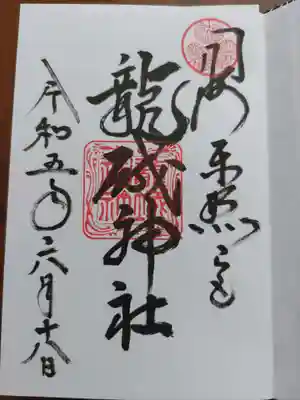 岡崎 東照公
龍城神社
令和五年六月十八日